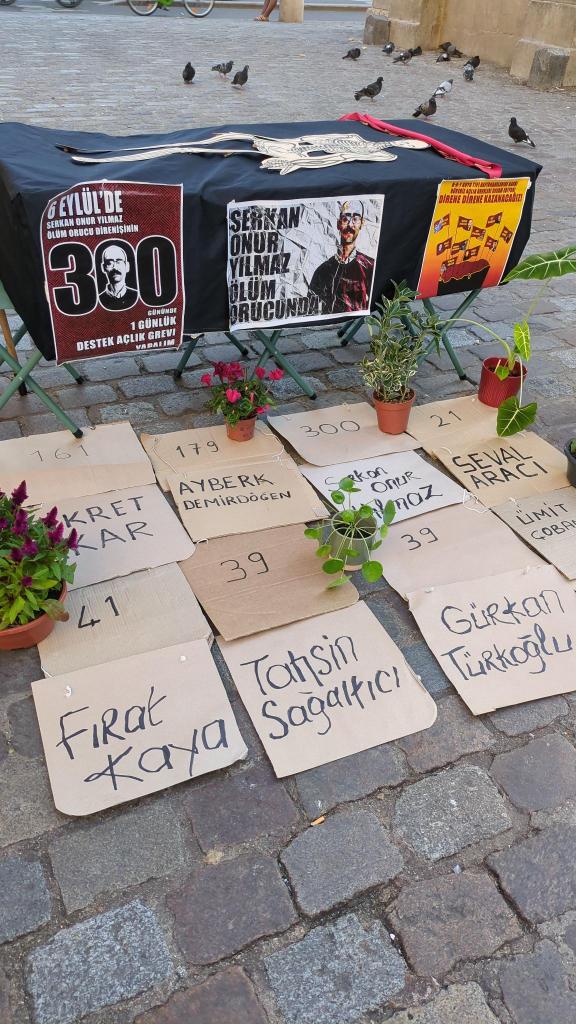 6 EYLÜL'DE
SERKAN ONUR YILMAZ
ÖLÜM ORUCU DİRENİŞİNİN
300
GÜNÜNDE
1 GÜNLÜK
DESTEK AÇLIK GREVİ
YAPALIM
SERKAN
ONUR
YILMAZ
ÖLÜM
ORUCUNDA
DİRENE DİRENE KAZANACAĞIZ!
161
KRET
KAR
179
AYBERK
DEMİRDÖĞEN
300
Serkan Onur
21
SEVAL
ARACI
ÜMİT
ÇOBAN
41
Fırat
Kaya
39
Tahsin
Sağaltıcı
39
Gürkan
Türkoğlu